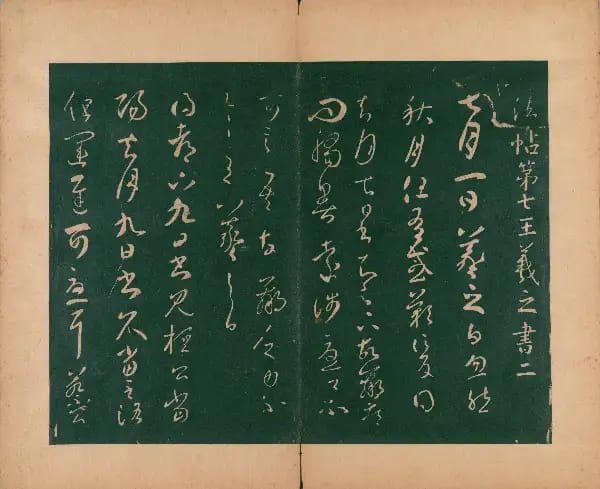 法帖第七王羲之書二
七月一日羲之白忽然
秋月但有感歎信反得
去月七日書知足下故羸疾
問觸暑遠涉憂卿不
可言吾故羸乏力不
王羲之白
得都下九日書見桓公當
陽去月九日書久當至洛
但運遲可憂耳蔡公